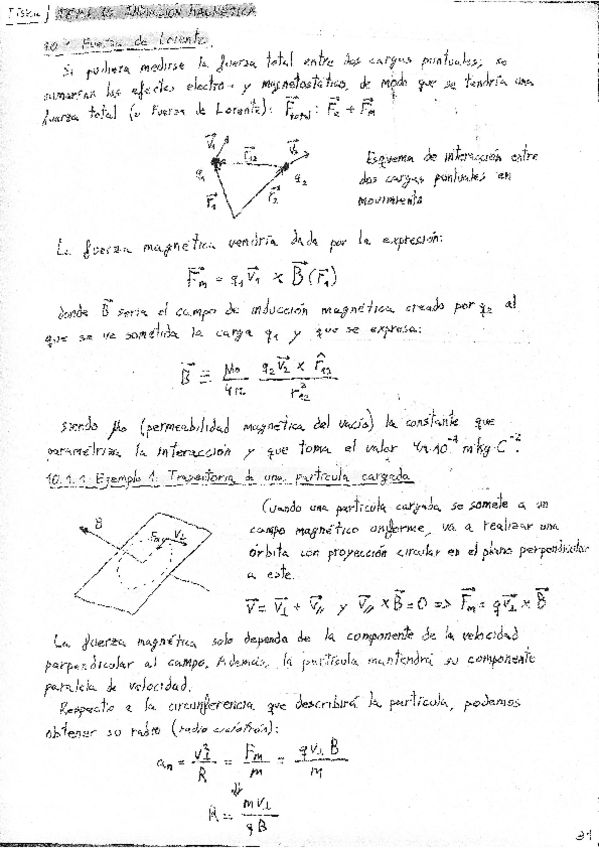 Física I TEMA 10. INDUCCIÓN MAGNÉTICA
10.1 Fuerza de Lorentz.
Si pudiera medirse la fuerza total entre dos cargas puntuales, se
sumarían los efectos electro- y magnetostático, de modo que se tendría una
fuerza total (o Fuerza de Lorentz): F⃗total = F⃗e + F⃗m
V⃗1 r⃗12 V⃗2
q1 q2
r⃗1 r⃗2
Esquema de interacción entre
dos cargas puntuales en
movimiento
La fuerza magnética vendría dada por la expresión:
F⃗m = q1 V⃗1 × B⃗(r⃗1)
donde B⃗ sería el campo de inducción magnética creado por q2 al
que se ve sometida la carga q1 y que se expresa:
B⃗ = μ0/4π q2 V⃗2 × r̂12 / r²12
siendo μ0 (permeabilidad magnética del vacío) la constante que
parametriza la interacción y que toma el valor 4π·10⁻⁷ m·kg·C⁻².
10.1.1 Ejemplo 1: Trayectoria de una partícula cargada
B⃗ F⃗m V⃗⊥
Cuando una partícula cargada se somete a un
campo magnético uniforme, va a realizar una
órbita con proyección circular en el plano perpendicular
a este.
V⃗ = V⃗⊥ + V⃗// y V⃗// × B⃗ = 0 => F⃗m = q V⃗⊥ × B⃗
La fuerza magnética solo depende de la componente de la velocidad
perpendicular al campo. Además, la partícula mantendrá su componente
paralela de velocidad.
Respecto a la circunferencia que describirá la partícula, podemos
obtener su radio (radio ciclotrón):
an = V²⊥/R = Fm/m = q V⊥ B/m
⇓
R = m V⊥/q B
31